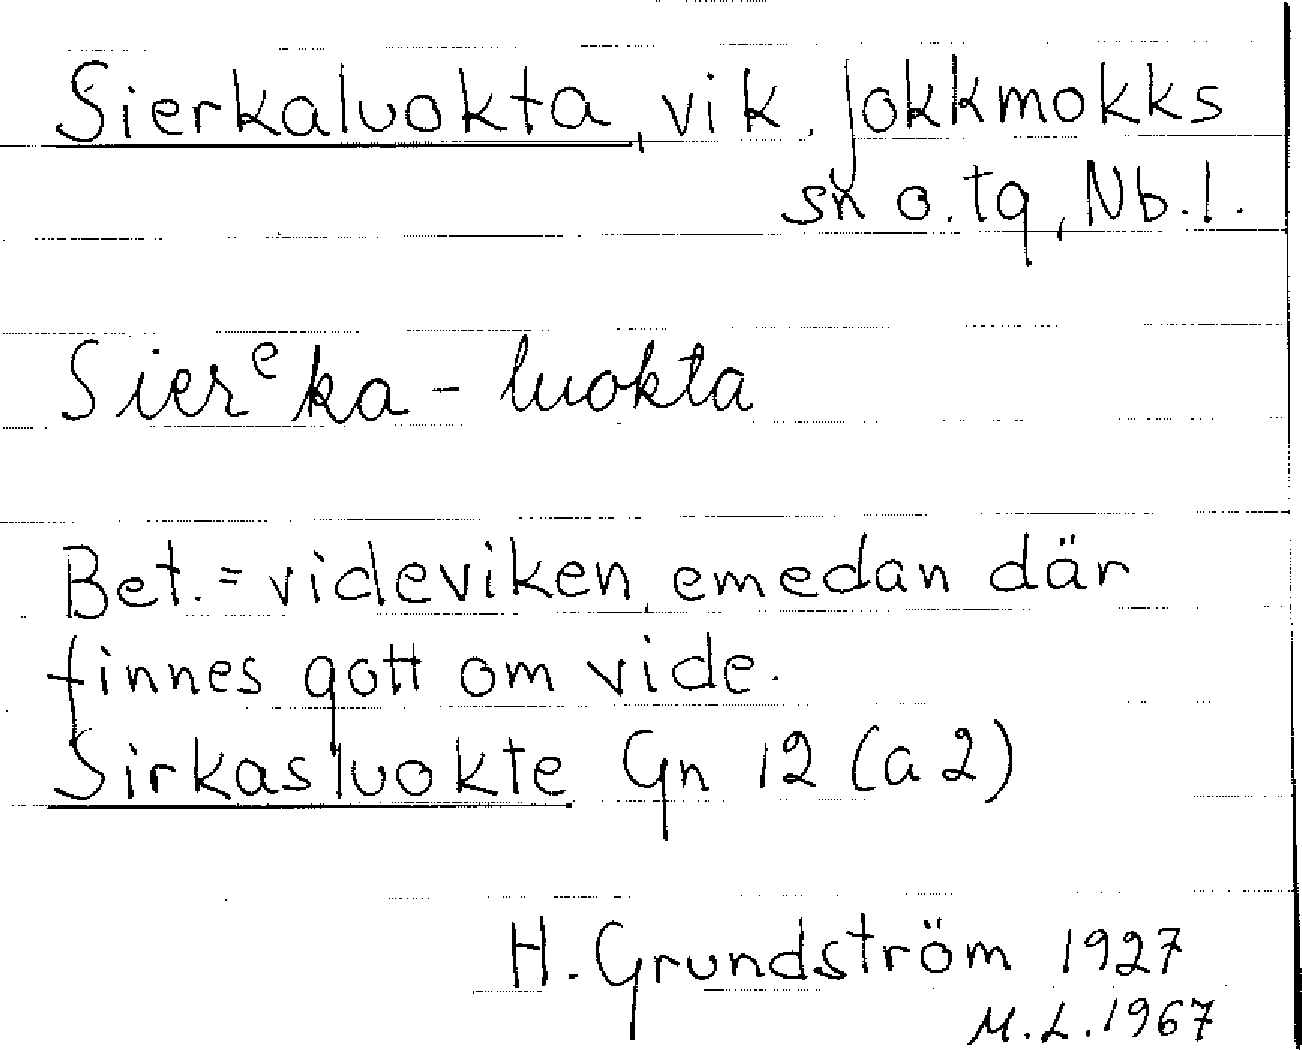 Sierkaluokta, vik, Jokkmokks
sn o. tg, Nb. l.
Sierᵉka - luokta
Bet. = videviken, emedan där
finnes gott om vide.
Sirkasluokte Gn 12 (a 2)
H. Grundström 1927
M. L. 1967